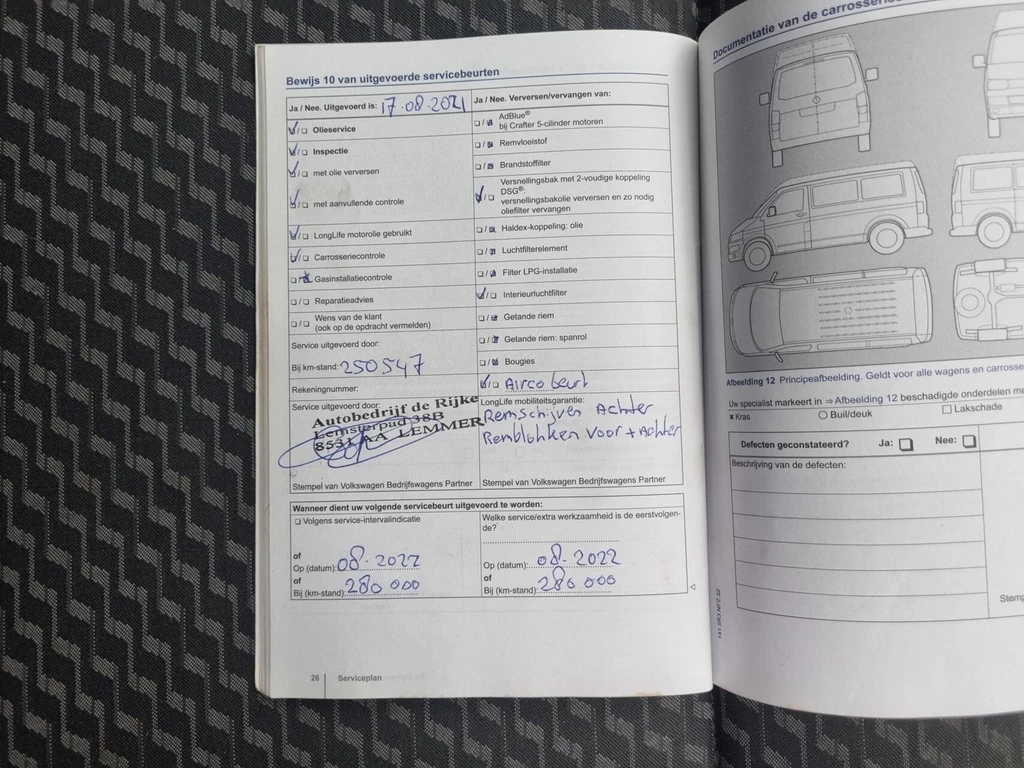 Bewijs 10 van uitgevoerde servicebeurten
Ja / Nee. Uitgevoerd is: 17-08-2021
Olieservice
Inspectie
met olie verversen
met aanvullende controle
LongLife motorolie gebruikt
Carrosseriecontrole
Gasinstallatiecontrole
Reparatieadvies
Wens van de klant
(ook op de opdracht vermelden)
Service uitgevoerd door:
Bij km-stand: 250547
Rekeningnummer:
Service uitgevoerd door:
Autobedrijf de Rijke
Lemsterpad 38B
8531 AA LEMMER
Stempel van Volkswagen Bedrijfswagens Partner
Ja / Nee. Verversen/vervangen van:
AdBlue®
bij Crafter 5-cilinder motoren
Remvloeistof
Brandstoffilter
Versnellingsbak met 2-voudige koppeling
DSG®:
versnellingsbakolie verversen en zo nodig
oliefilter vervangen
Haldex-koppeling: olie
Luchtfilterelement
Filter LPG-installatie
Interieurluchtfilter
Getande riem
Getande riem: spanrol
Bougies
Airco beurt
LongLife mobiliteitsgarantie:
Remschijven Achter
Remblokken Voor + Achter
Stempel van Volkswagen Bedrijfswagens Partner
Wanneer dient uw volgende servicebeurt uitgevoerd te worden:
Volgens service-intervalindicatie
of
Op (datum): 08-2022
of
Bij (km-stand): 280 000
Welke service/extra werkzaamheid is de eerstvolgen-
de?
Op (datum): 08-2022
of
Bij (km-stand): 280 000
26 Serviceplan
Documentatie van de
Afbeelding 12 Principeafbeelding. Geldt voor alle wagens en
Uw specialist markeert in ⇒Afbeelding 12 beschadigde onderdelen
x Kras Buil/deuk Lakschade
Defecten geconstateerd? Ja: Nee:
Beschrijving van de defecten: